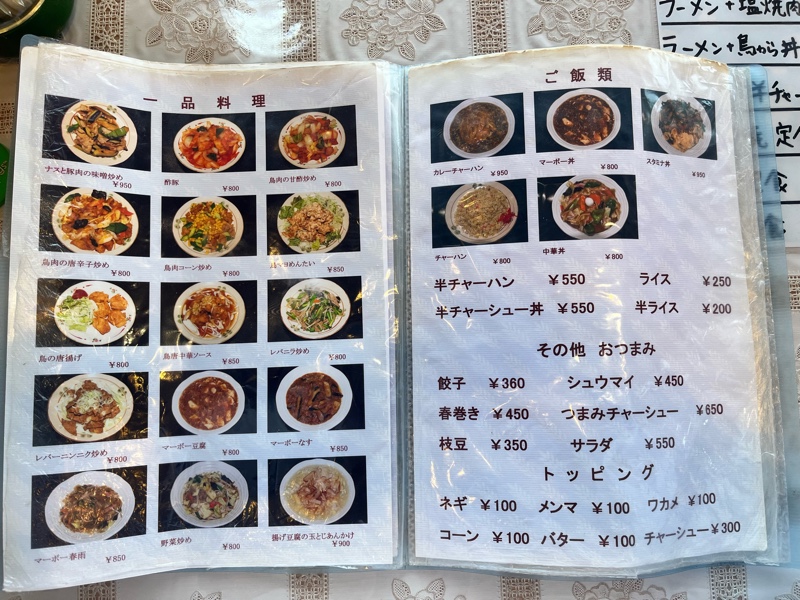 一品料理
ナスと豚肉の味噌炒め
￥950
酢豚
￥800
鳥肉の甘酢炒め
￥800
鳥肉の唐辛子炒め
￥800
鳥肉コーン炒め
￥800
めんたい
￥850
鳥の唐揚げ
￥800
鳥唐中華ソース
￥850
レバニラ炒め
￥800
レバーニンニク炒め
￥800
マーボー豆腐
￥800
マーボーなす
￥850
マーボー春雨
￥850
野菜炒め
￥800
揚げ豆腐の玉とじあんかけ
￥900
ご飯類
カレーチャーハン
￥950
マーボー丼
￥800
スタミナ丼
￥950
チャーハン
￥800
中華丼
￥800
半チャーハン ￥550 ライス ￥250
半チャーシュー丼 ￥550 半ライス ￥200
その他 おつまみ
餃子 ￥360 シュウマイ ￥450
春巻き ￥450 つまみチャーシュー ￥650
枝豆 ￥350 サラダ ￥550
トッピング
ネギ ￥100 メンマ ￥100 ワカメ ￥100
コーン ￥100 バター ￥100 チャーシュー ￥300
ラーメン+塩焼肉
ラーメン+鳥から丼
チャー
定
食